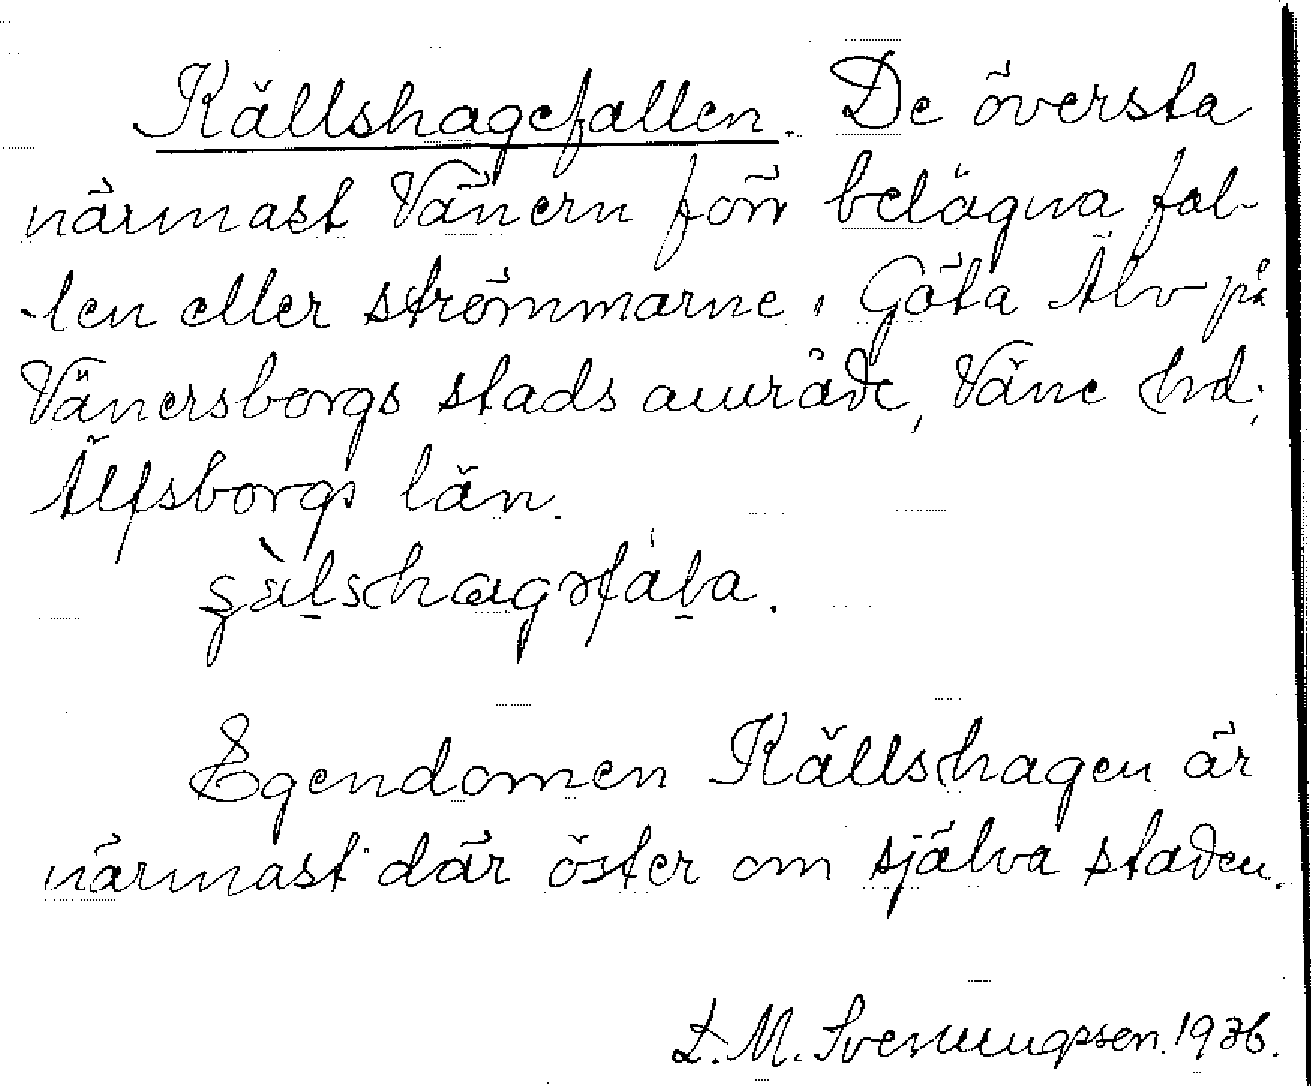 Källshagefallen. De översta
närmast Vänern förr belägna fal-
-len eller strömmarne i Göta Älv på
Vänersborgs stads område, Väne hd;
Älfsborgs län.
Egendomen Källshagen är
närmast där öster om själva staden.
L. M. Svenungsson. 1936.